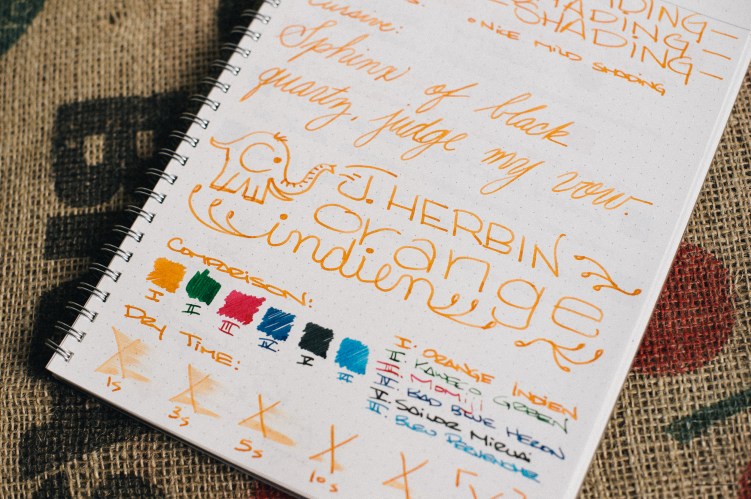 SHADING
SHADING
SHADING
Cursive:
° NICE MILD SHADING
Sphinx of black
quartz, judge my vow.
J. HERBIN
orange
indien
COMPARISON:
I II III IV V VI
DRY TIME:
1s 3s 5s 10s
I. ORANGE INDIEN
II. KAWECO GREEN
III. MOMIJI
IV. BAD BLUE HERON
V. SAILOR MIRUAI
VI. BLEU PERVENCHE